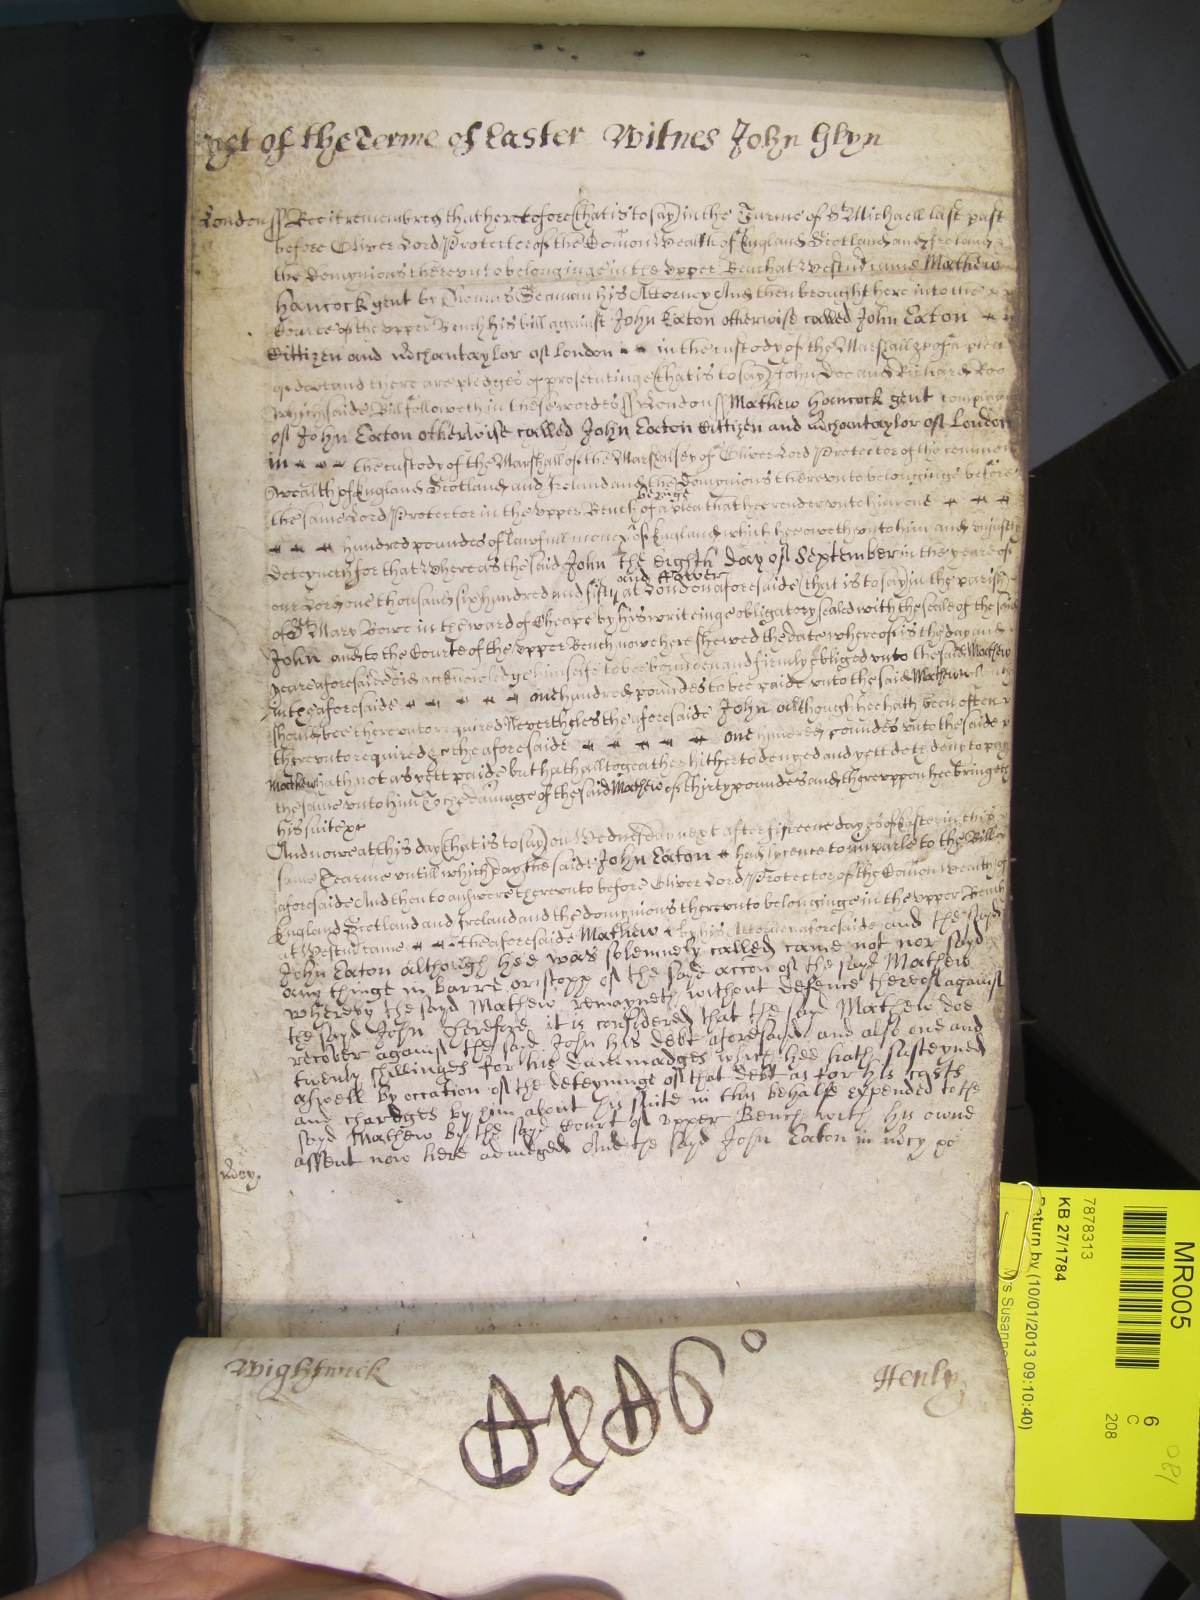 yet of the Terme of Easter Witnes John Glyn
London ss Bee it remembred that heretofore (that is to say) in the Tearme of St Michaell last past
before Oliver Lord Protector of the Comon Wealth of England Scotland and Ireland
the domynions thereunto belonginge in the upper Bench at Westmr came Mathew
Hancock gent by Thomas his Attorney And then brought here into the
Courte of the upper Bench his bill against John Eaton otherwise called John Eaton
Cittizen and Mrchantaylor of London in the custody of the Marshall &c of a plea
of debt and there are pledges of prosecutinge (that is to say) John Doe and Richard Roo
which saide Bill followeth in these wordes ss London ss Mathew Hancock gent
of John Eaton otherwise called John Eaton Cittizen and Mrchantaylor of London
in the custody of the Marshall of the Marshalsey of Oliver Lord Protector of the common
wealth of England Scotland and Ireland and the Domynions thereunto belonginge before
the same Lord Protector in the upper Bench beinge of a plea that hee render unto him one
hundred poundes of lawfull money of England which hee oweth unto him and unjustly
deteyneth for that whereas the said John the eighth day of September in the yeare of
our Lord one thousand six hundred and fifty and fower at London aforesaide (that is to say) in the parish
of St Mary Bowe in the ward of Cheape by his writeinge obligatory sealed with the seale of the said
John and to the Courte of the upper Bench nowe here shewed the date whereof is the day and
yeare aforesaide did acknowledge himselfe to bee bounden and firmly obliged unto the said Mathew
in the aforesaide one hundred poundes to bee paide unto the said Mathew
should bee thereunto required Neverthelesse the aforesaide John although hee hath been often
thereunto required the aforesaide one hundred poundes unto the saide
Mathew hath not as yett paide but hath altogeather hitherto denyed and yett doth deny to pay
the same unto him To the damage of the said Mathew of thirty poundes and thereuppon hee bringeth
his suite &c
And nowe at this day (that is to say) on Wednesday next after fifteene dayes of Easter in this
same Tearme untill which day the saide John Eaton had lycence to imparle to the Bill
aforesaide And then to answere thereunto before Oliver Lord Protector of the Comon Wealth of
England Scotland and Ireland and the domynions thereunto belonginge in the upper Bench
at Westmr came the aforesaide Mathew by his Attorney aforesaide and the sayd
John Eaton although hee was solemnely called came not nor sayd
any thinge in barre or stopp of the sayd accon of the sayd Mathew
whereby the sayd Mathew remayneth without defence thereof against
the sayd John Therefore it is considered that the sayd Mathew doe
recover against the sayd John his debt aforesayd and also one and
twenty shillinges for his dammadges which hee hath susteyned
aswell by occation of the deteyninge of that debt as for his costs
and chardges by him about his suite in this behalfe expended to the
sayd Mathew by the sayd Court of upper Bench with his owne
assent now here adiudged And the sayd John Eaton in mcy &c
Mcy.
Wightwick
Henly
MR005
7878313
KB 27/1784
6
C
208
Return by (10/01/2013 09:10:40)